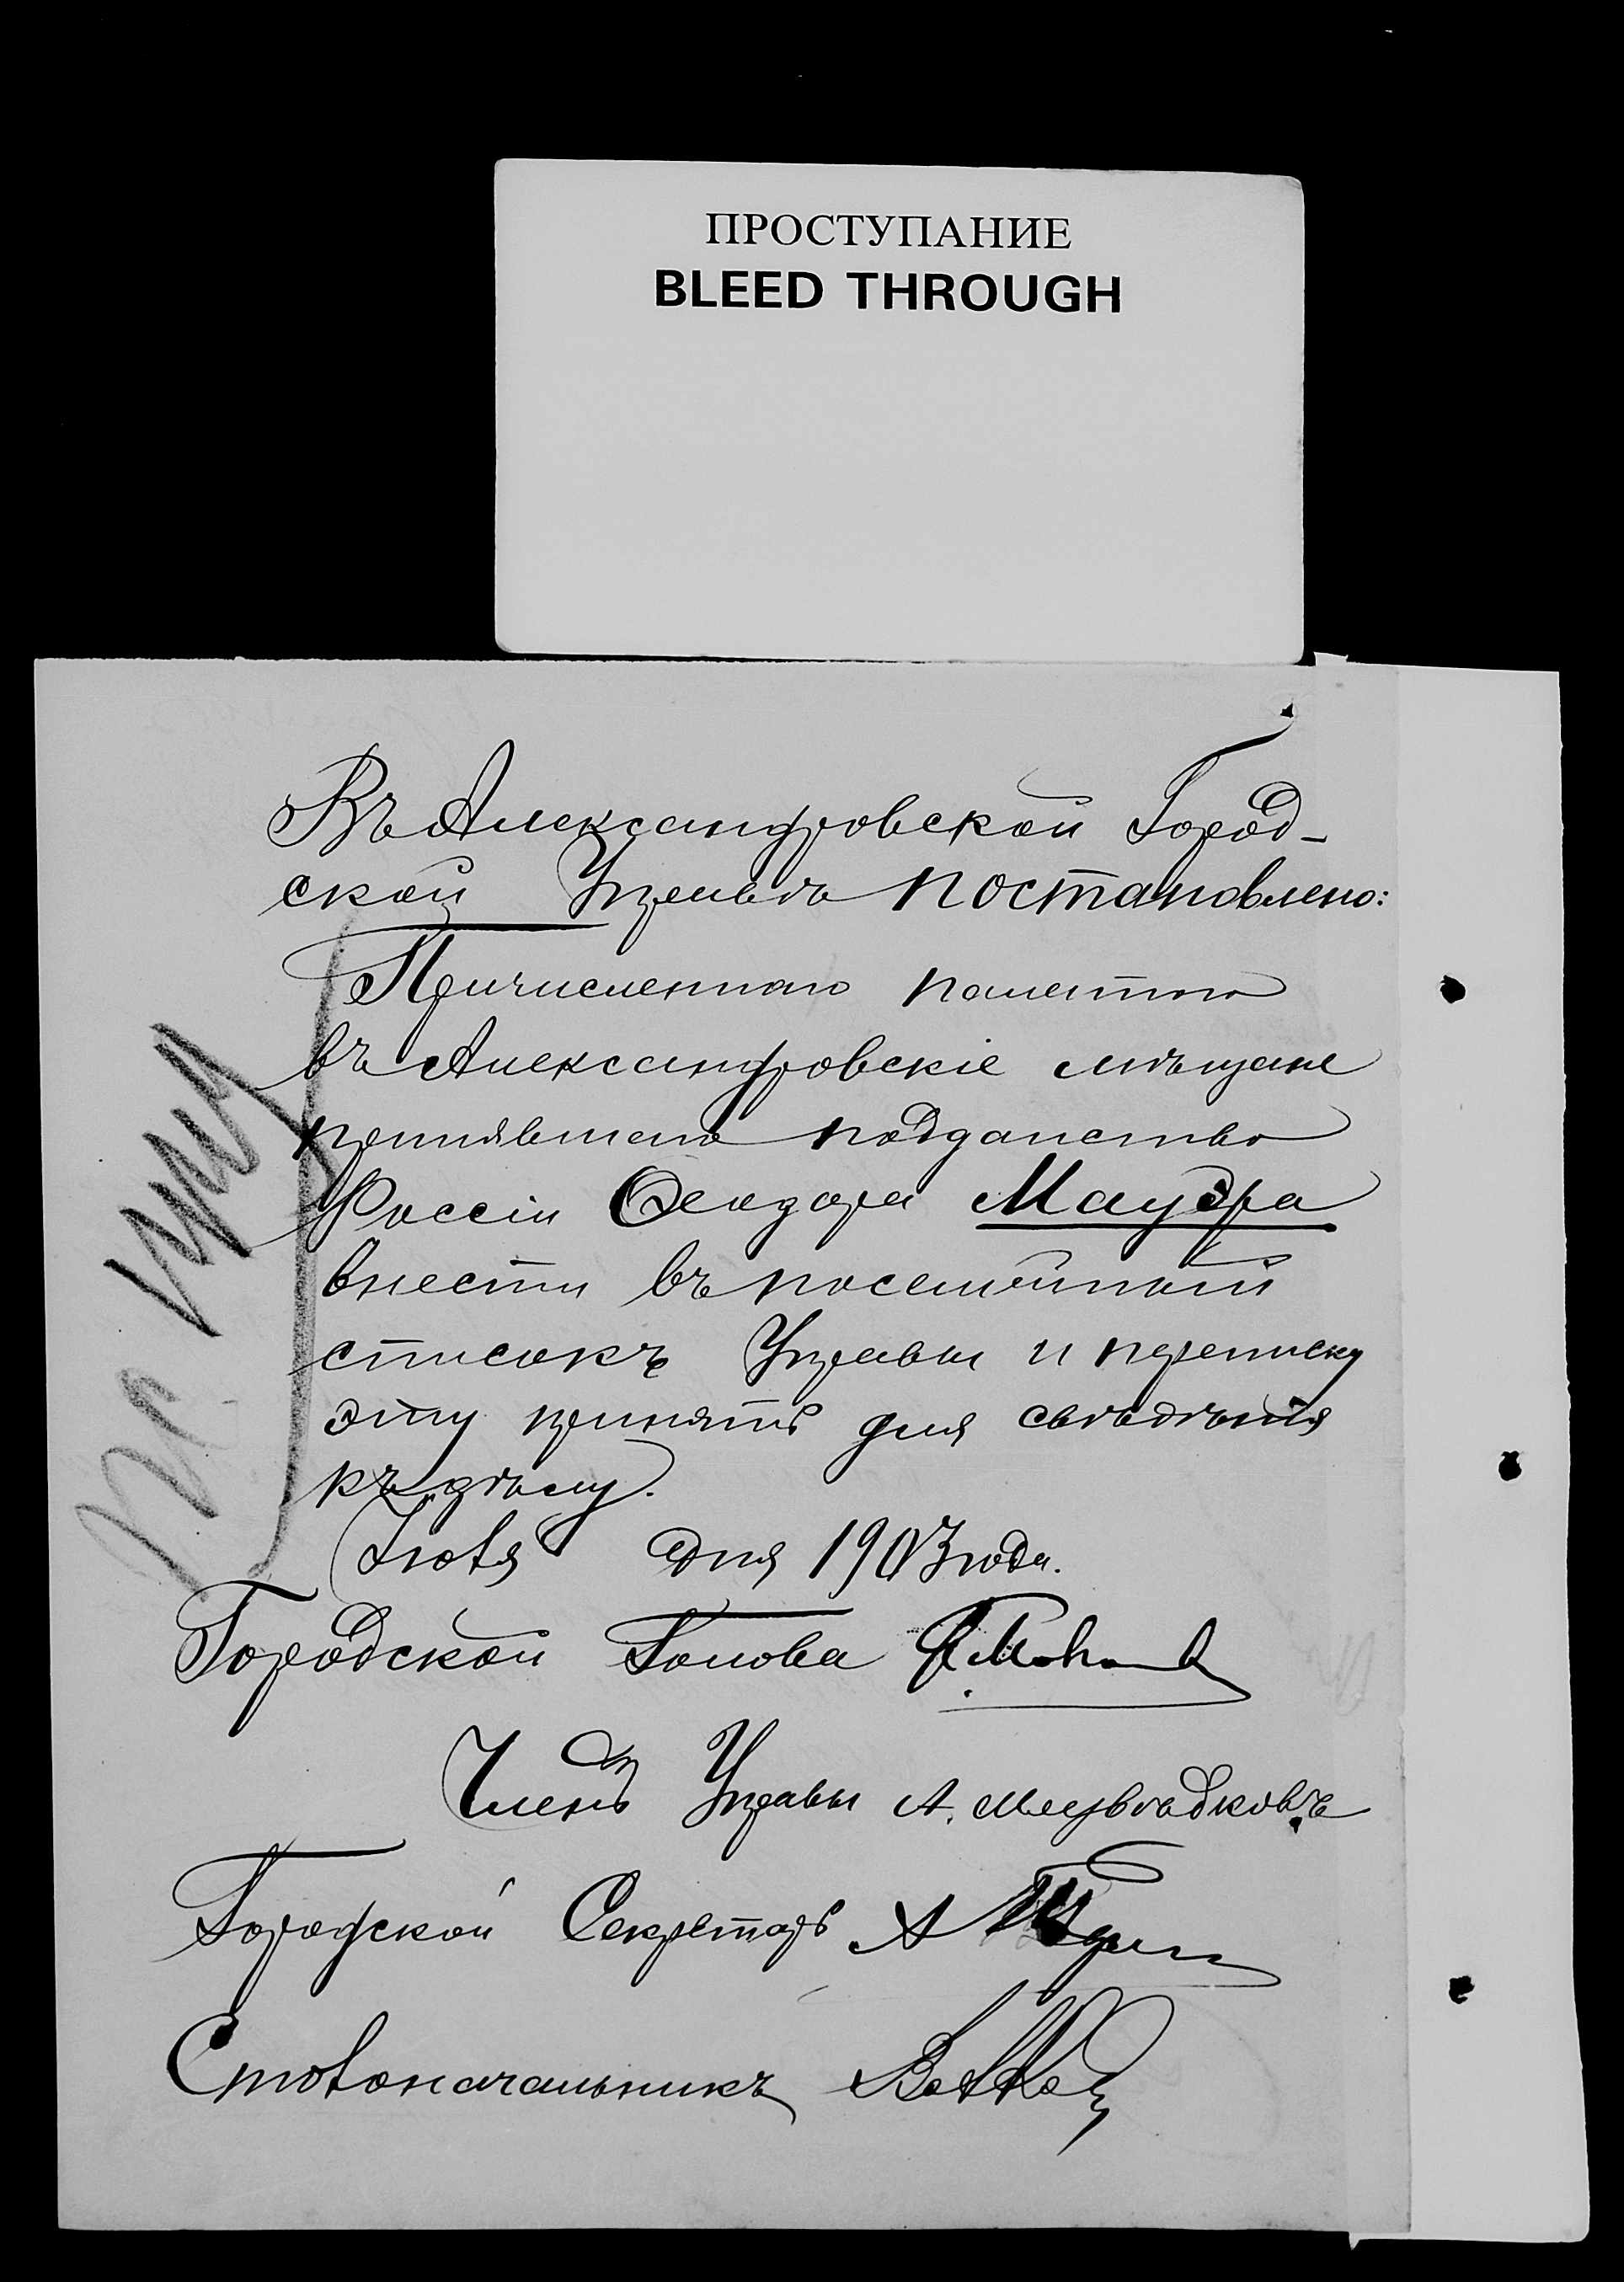 ПРОСТУПАНИЕ
BLEED THROUGH
Въ Александровской Город-
ской Управѣ постановлено:
Причисленнаго палатою
въ Александровскіе мѣщане
принявшаго подданство
Россіи Ѳеодора Мауэра
внести въ посемейный
списокъ Управы и переписку
эту принять для свѣдѣнія
къ дѣлу.
Іюля дня 1903 года.
Городской Голова
Членъ Управы А. Медвѣдковъ
Городской Секретарь А
Столоначальникъ